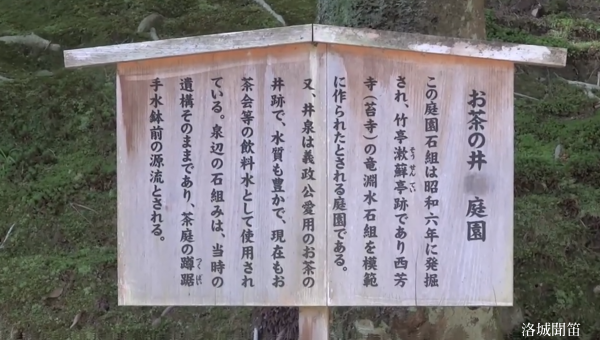 お茶の井 庭園
この庭園石組は昭和六年に発掘
され、竹亭漱蘇亭跡であり西芳
寺(苔寺)の竜淵水石組を模範
に作られたとされる庭園である。
又、井泉は義政公愛用のお茶の
井跡で、水質も豊かで、現在もお
茶会等の飲料水として使用され
ている。泉辺の石組みは、当時の
遺構そのままであり、茶庭の蹲踞
手水鉢前の源流とされる。
そうせんてい
つくばい
洛城聞笛